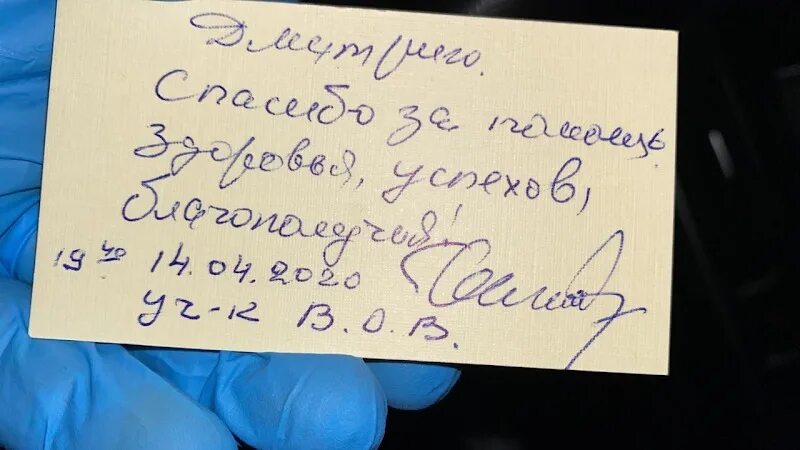 Дмитрию.
Спасибо за помощь
Здоровья, успехов,
благополучия!
19 40 14.04.2020
уч-к В.О.В.